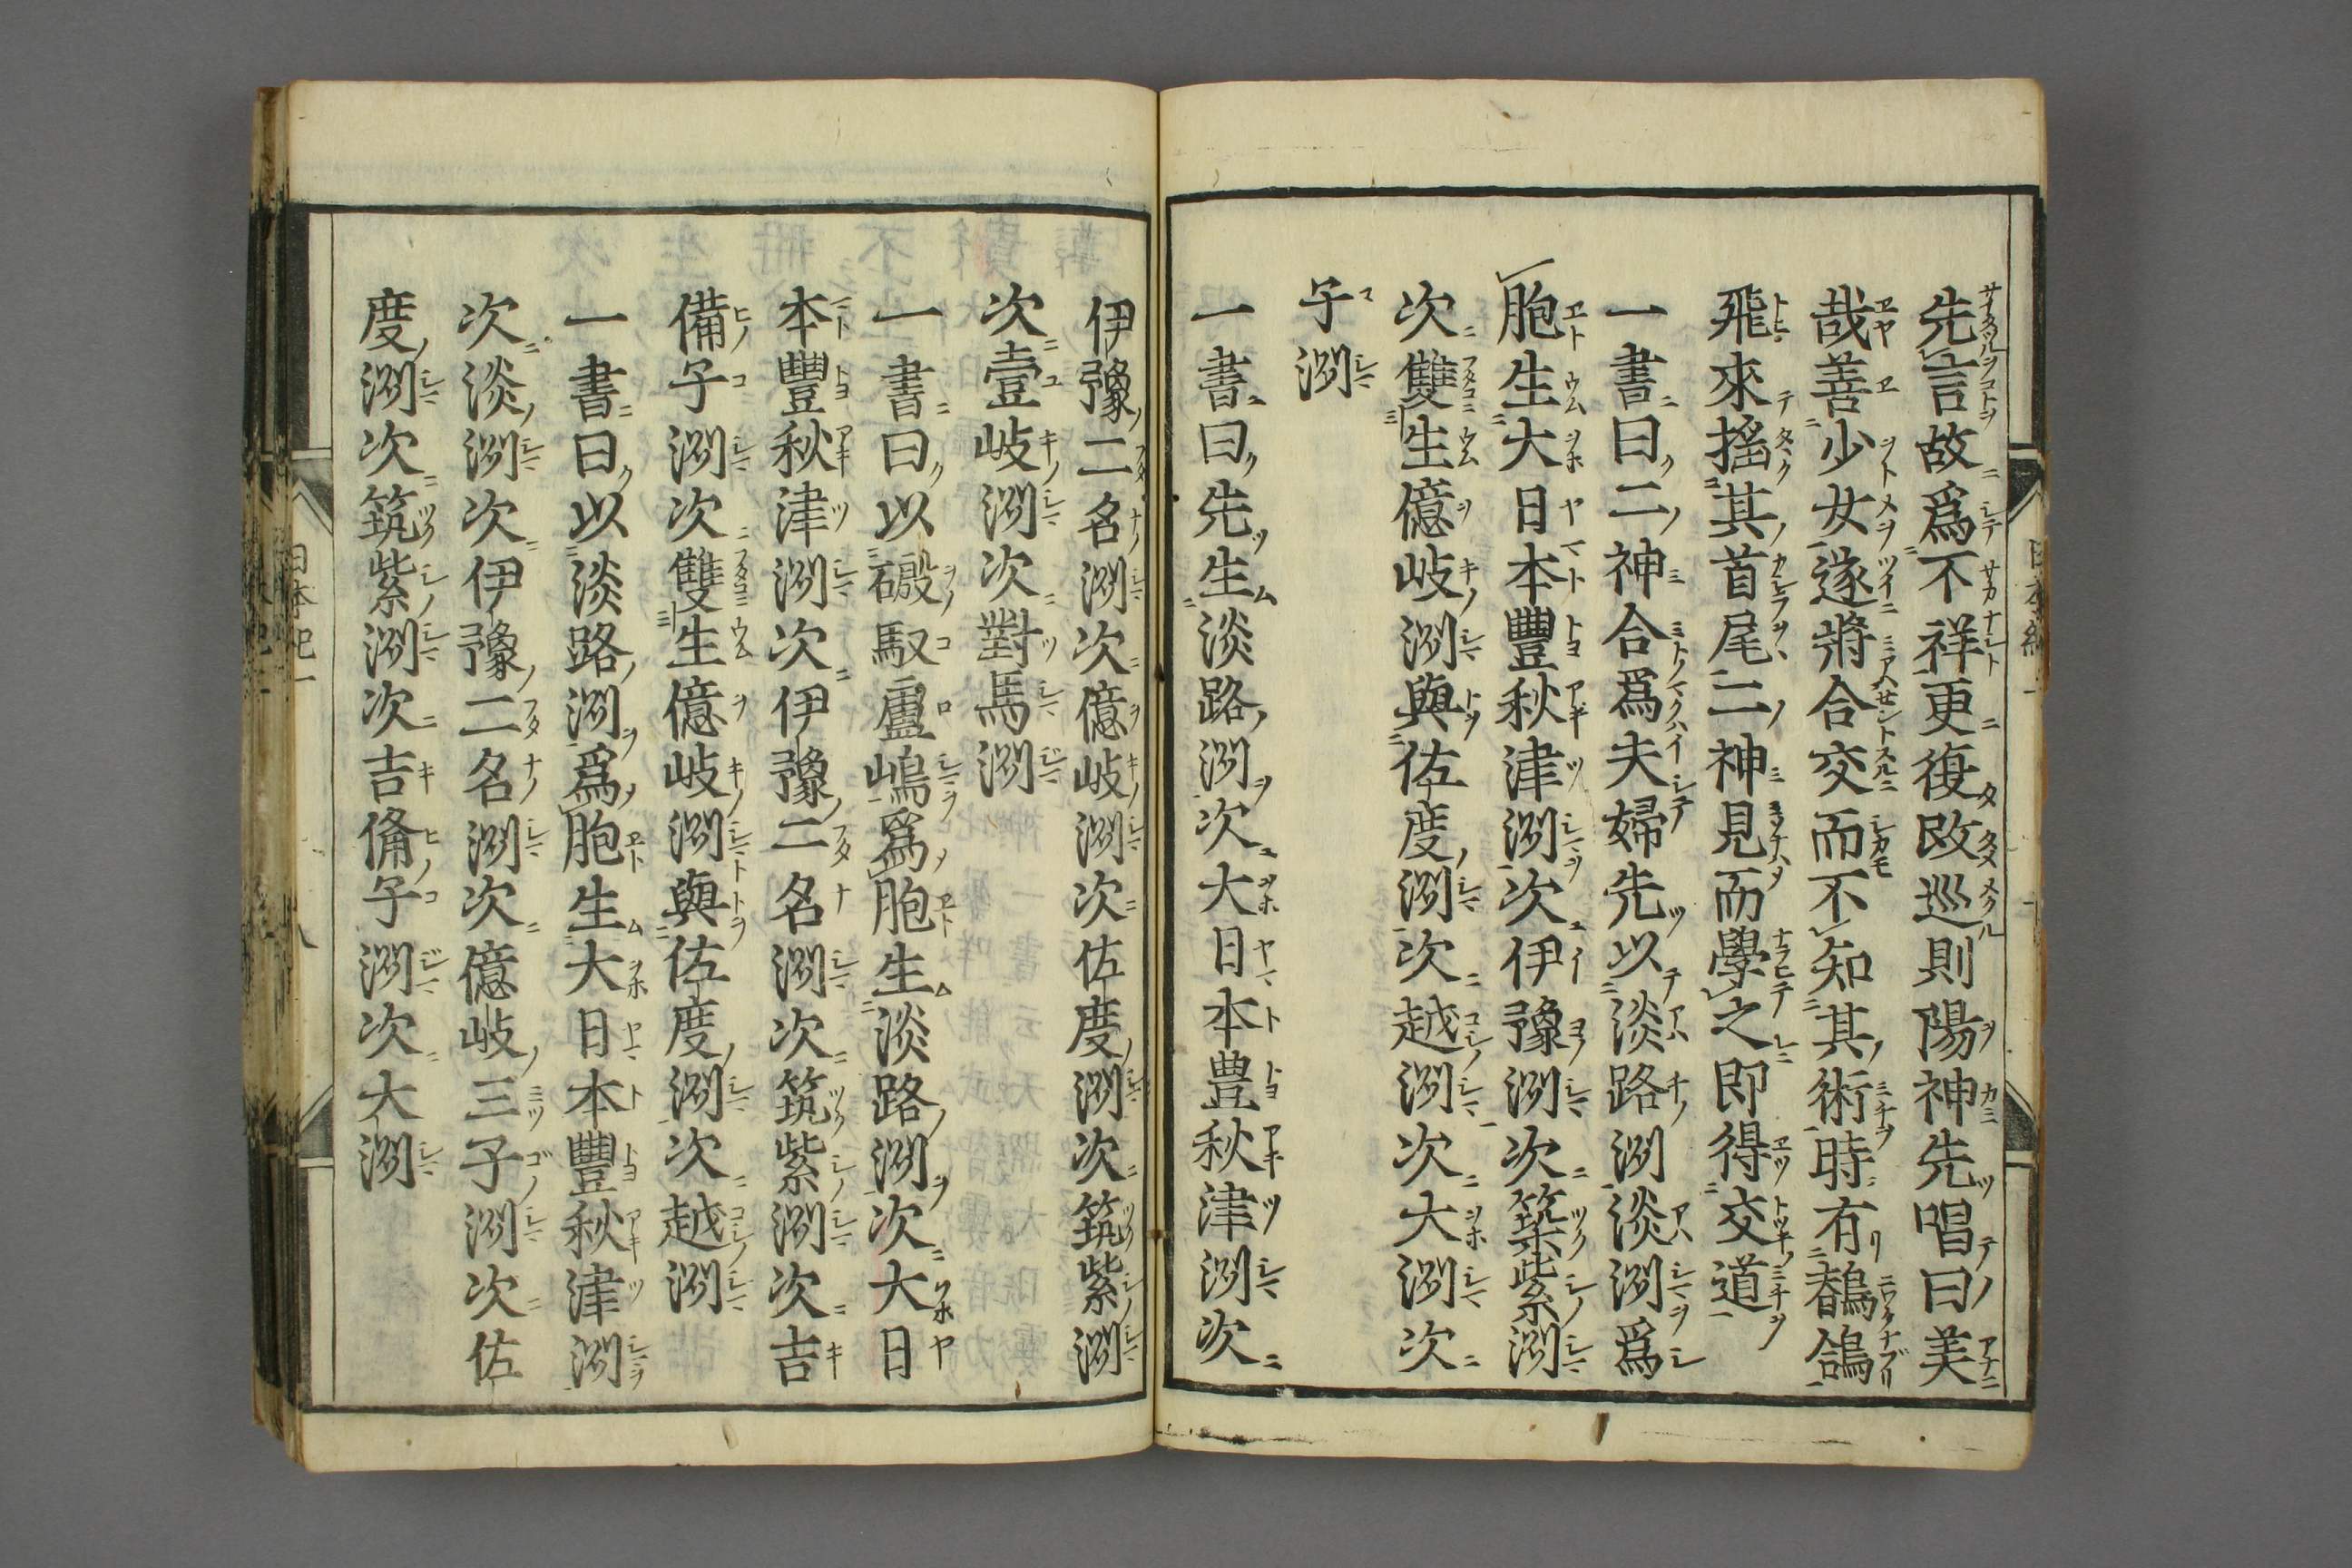 先言故爲不祥更復改巡則陽神先唱曰美
哉善少女遂將合交而不知其術時有鶺鴒
飛來搖其首尾二神見而學之即得交道
一書曰二神合爲夫婦先以淡路洲淡洲爲
胞生大日本豐秋津洲次伊豫洲次築紫洲
次雙生億岐洲與佐度洲次越洲次大洲次
子洲
一書曰先生淡路洲次大日本豊秋津洲次
伊豫二名洲次億岐洲次佐度洲次筑紫洲
次壹岐洲次對馬洲
一書曰以磤馭盧嶋爲胞生淡路洲次大日
本豐秋津洲次伊豫二名洲次筑紫洲次吉
備子洲次雙生億岐洲與佐度洲次越洲
一書曰以淡路洲爲胞生大日本豐秋津洲
次淡洲次伊豫二名洲次億岐三子洲次佐
度洲次筑紫洲次吉備子洲次大洲
日本紀一